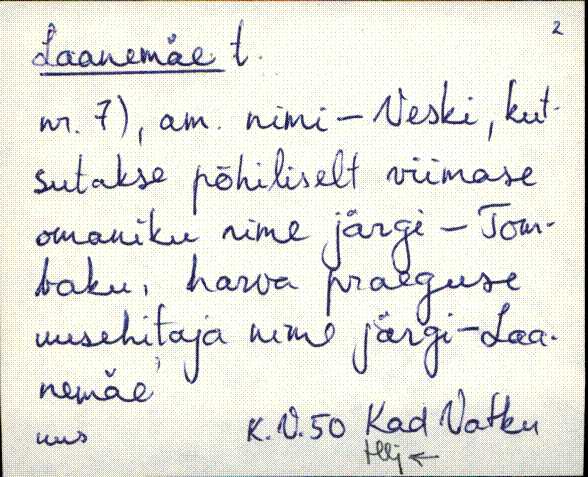 2
Laanemäe t.
nr. 7), am. nimi – Veski, kut-
sutakse põhiliselt viimase
omaniku nime järgi – Tom-
baku, harva praeguse
uusehitaja nime järgi – Laa-
nemäe
uus K.V.50 Kad Vatku
Hlj ←